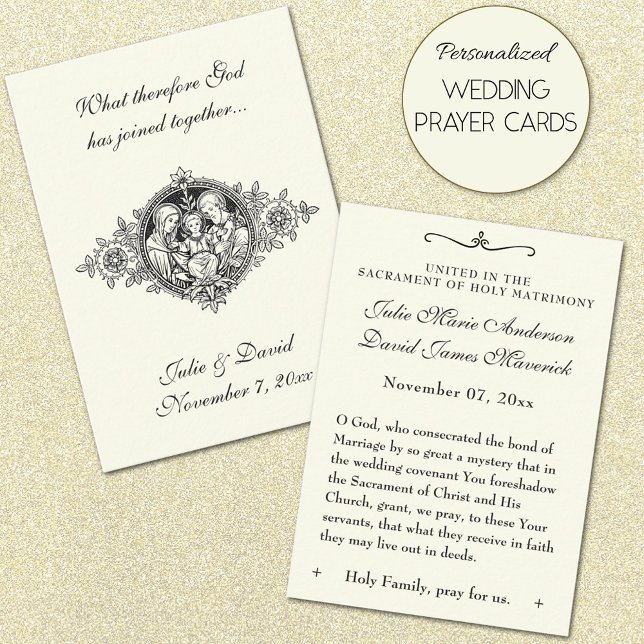 Personalized
WEDDING
PRAYER CARDS
What therefore God
has joined together...
Julie & David
November 7, 20xx
UNITED IN THE
SACRAMENT OF HOLY MATRIMONY
Julie Marie Anderson
David James Maverick
November 07, 20xx
O God, who consecrated the bond of
Marriage by so great a mystery that in
the wedding covenant You foreshadow
the Sacrament of Christ and His
Church, grant, we pray, to these Your
servants, that what they receive in faith
they may live out in deeds.
+ Holy Family, pray for us. +